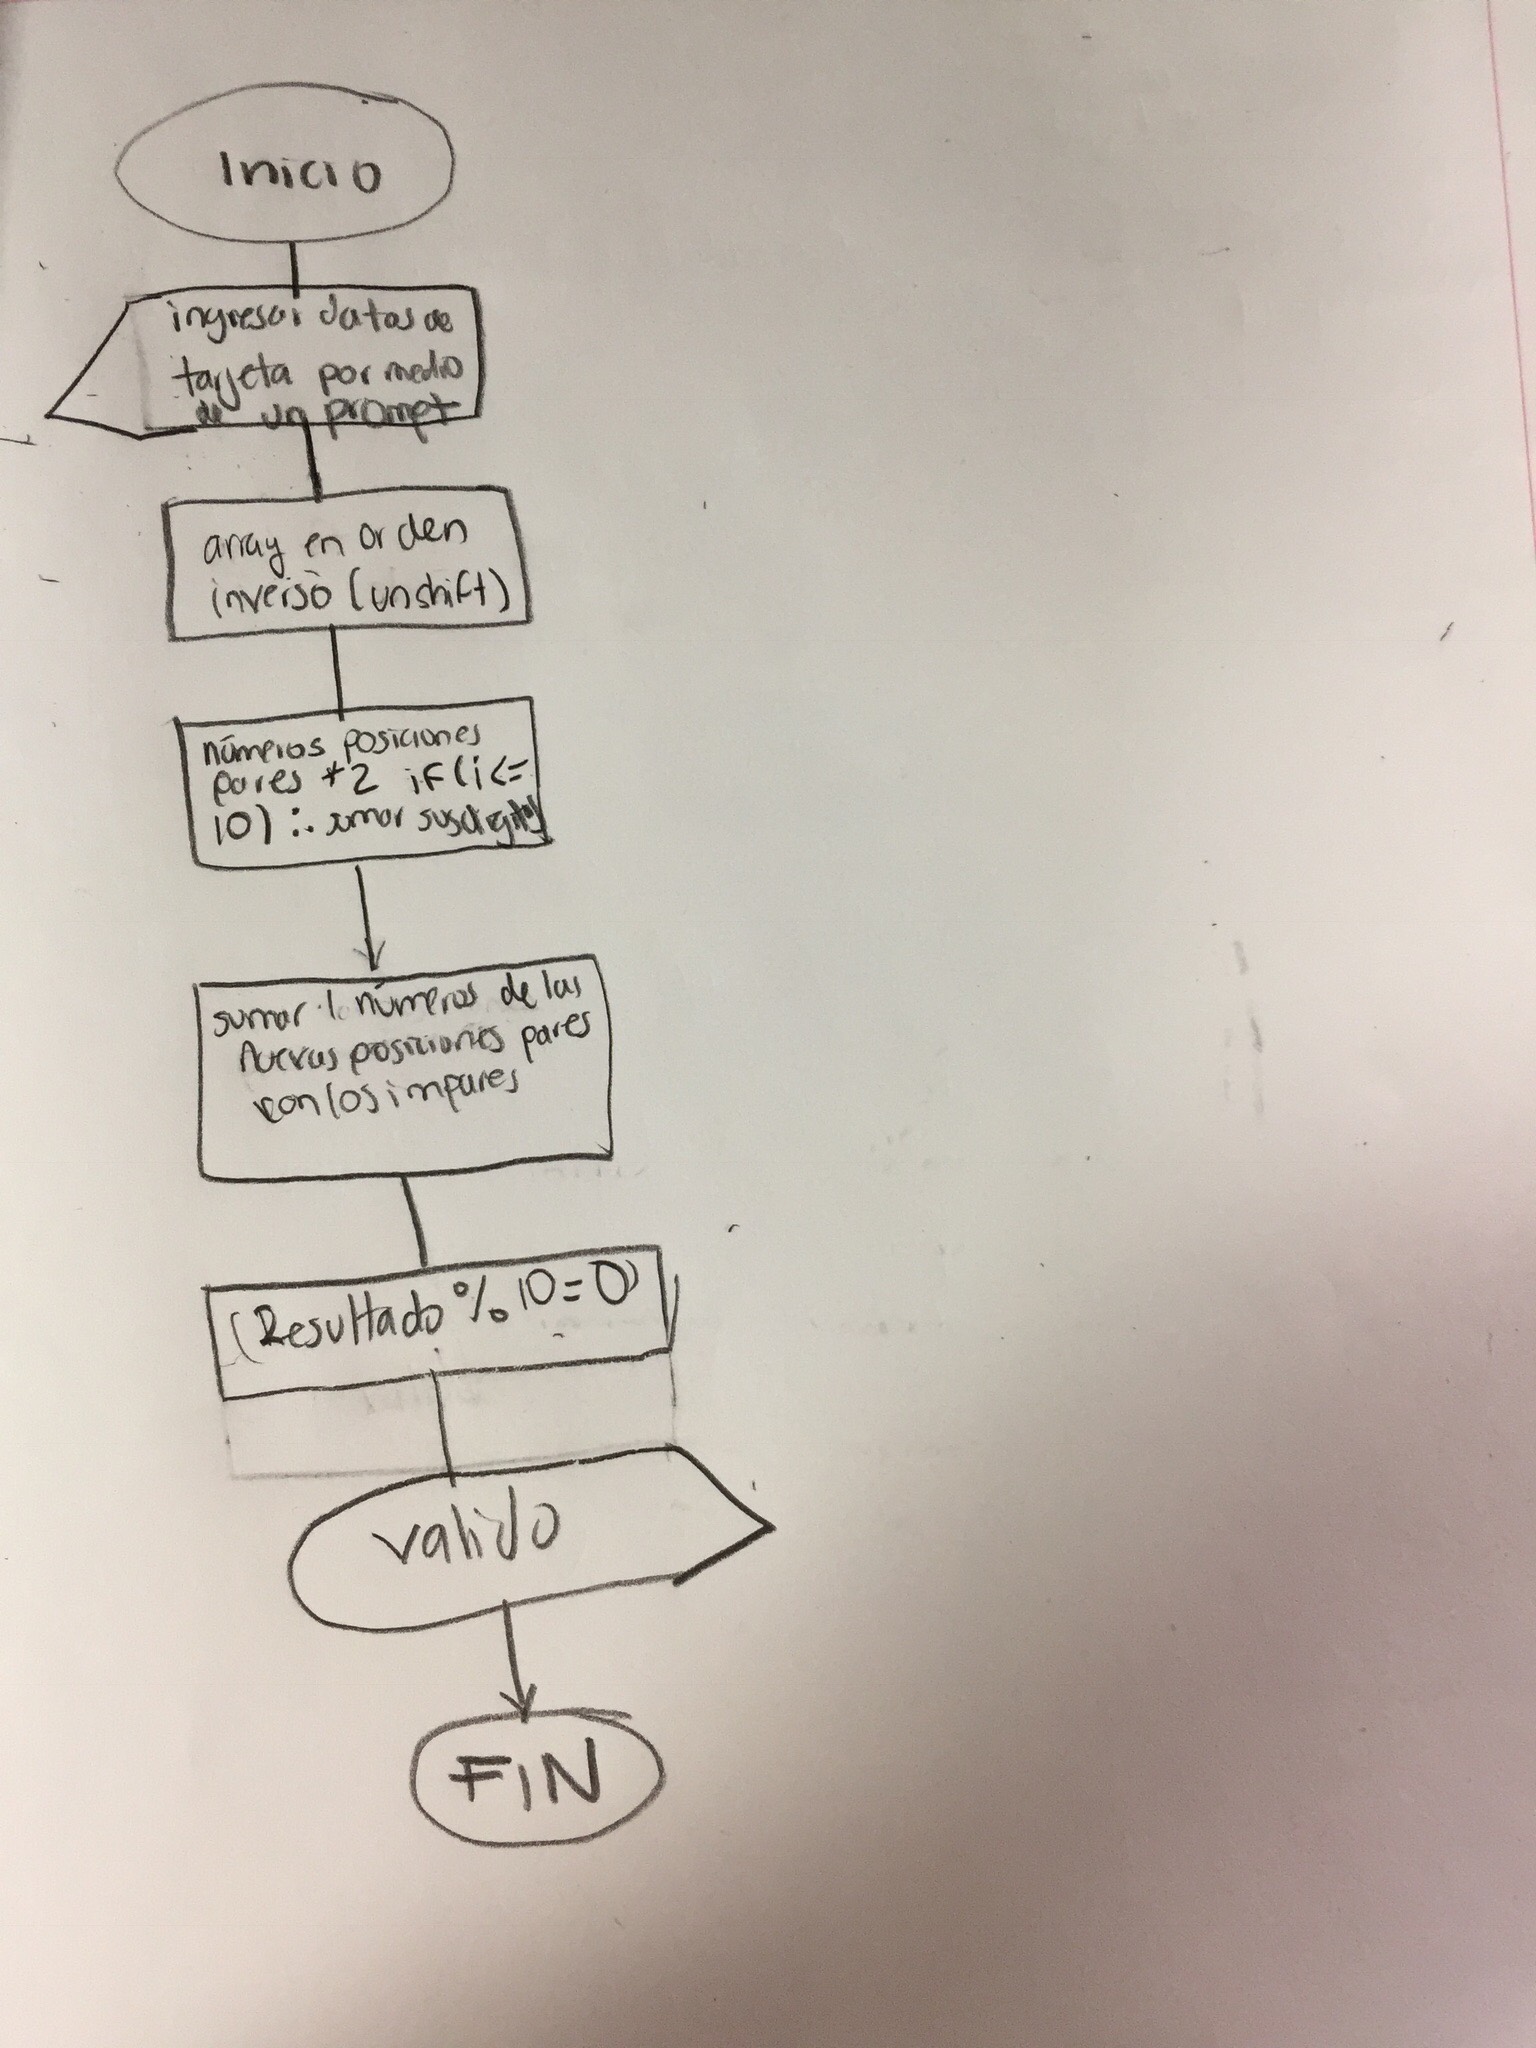 Inicio
ingresar datos de
tarjeta por medio
de un prompt
array en orden
inverso (unshift)
números posiciones
pares *2 if(i<=
10) ∴ sumar sus digitos
sumar números de las
nuevas posiciones pares
con los impares
(Resultado % 10=0)
valido
FIN